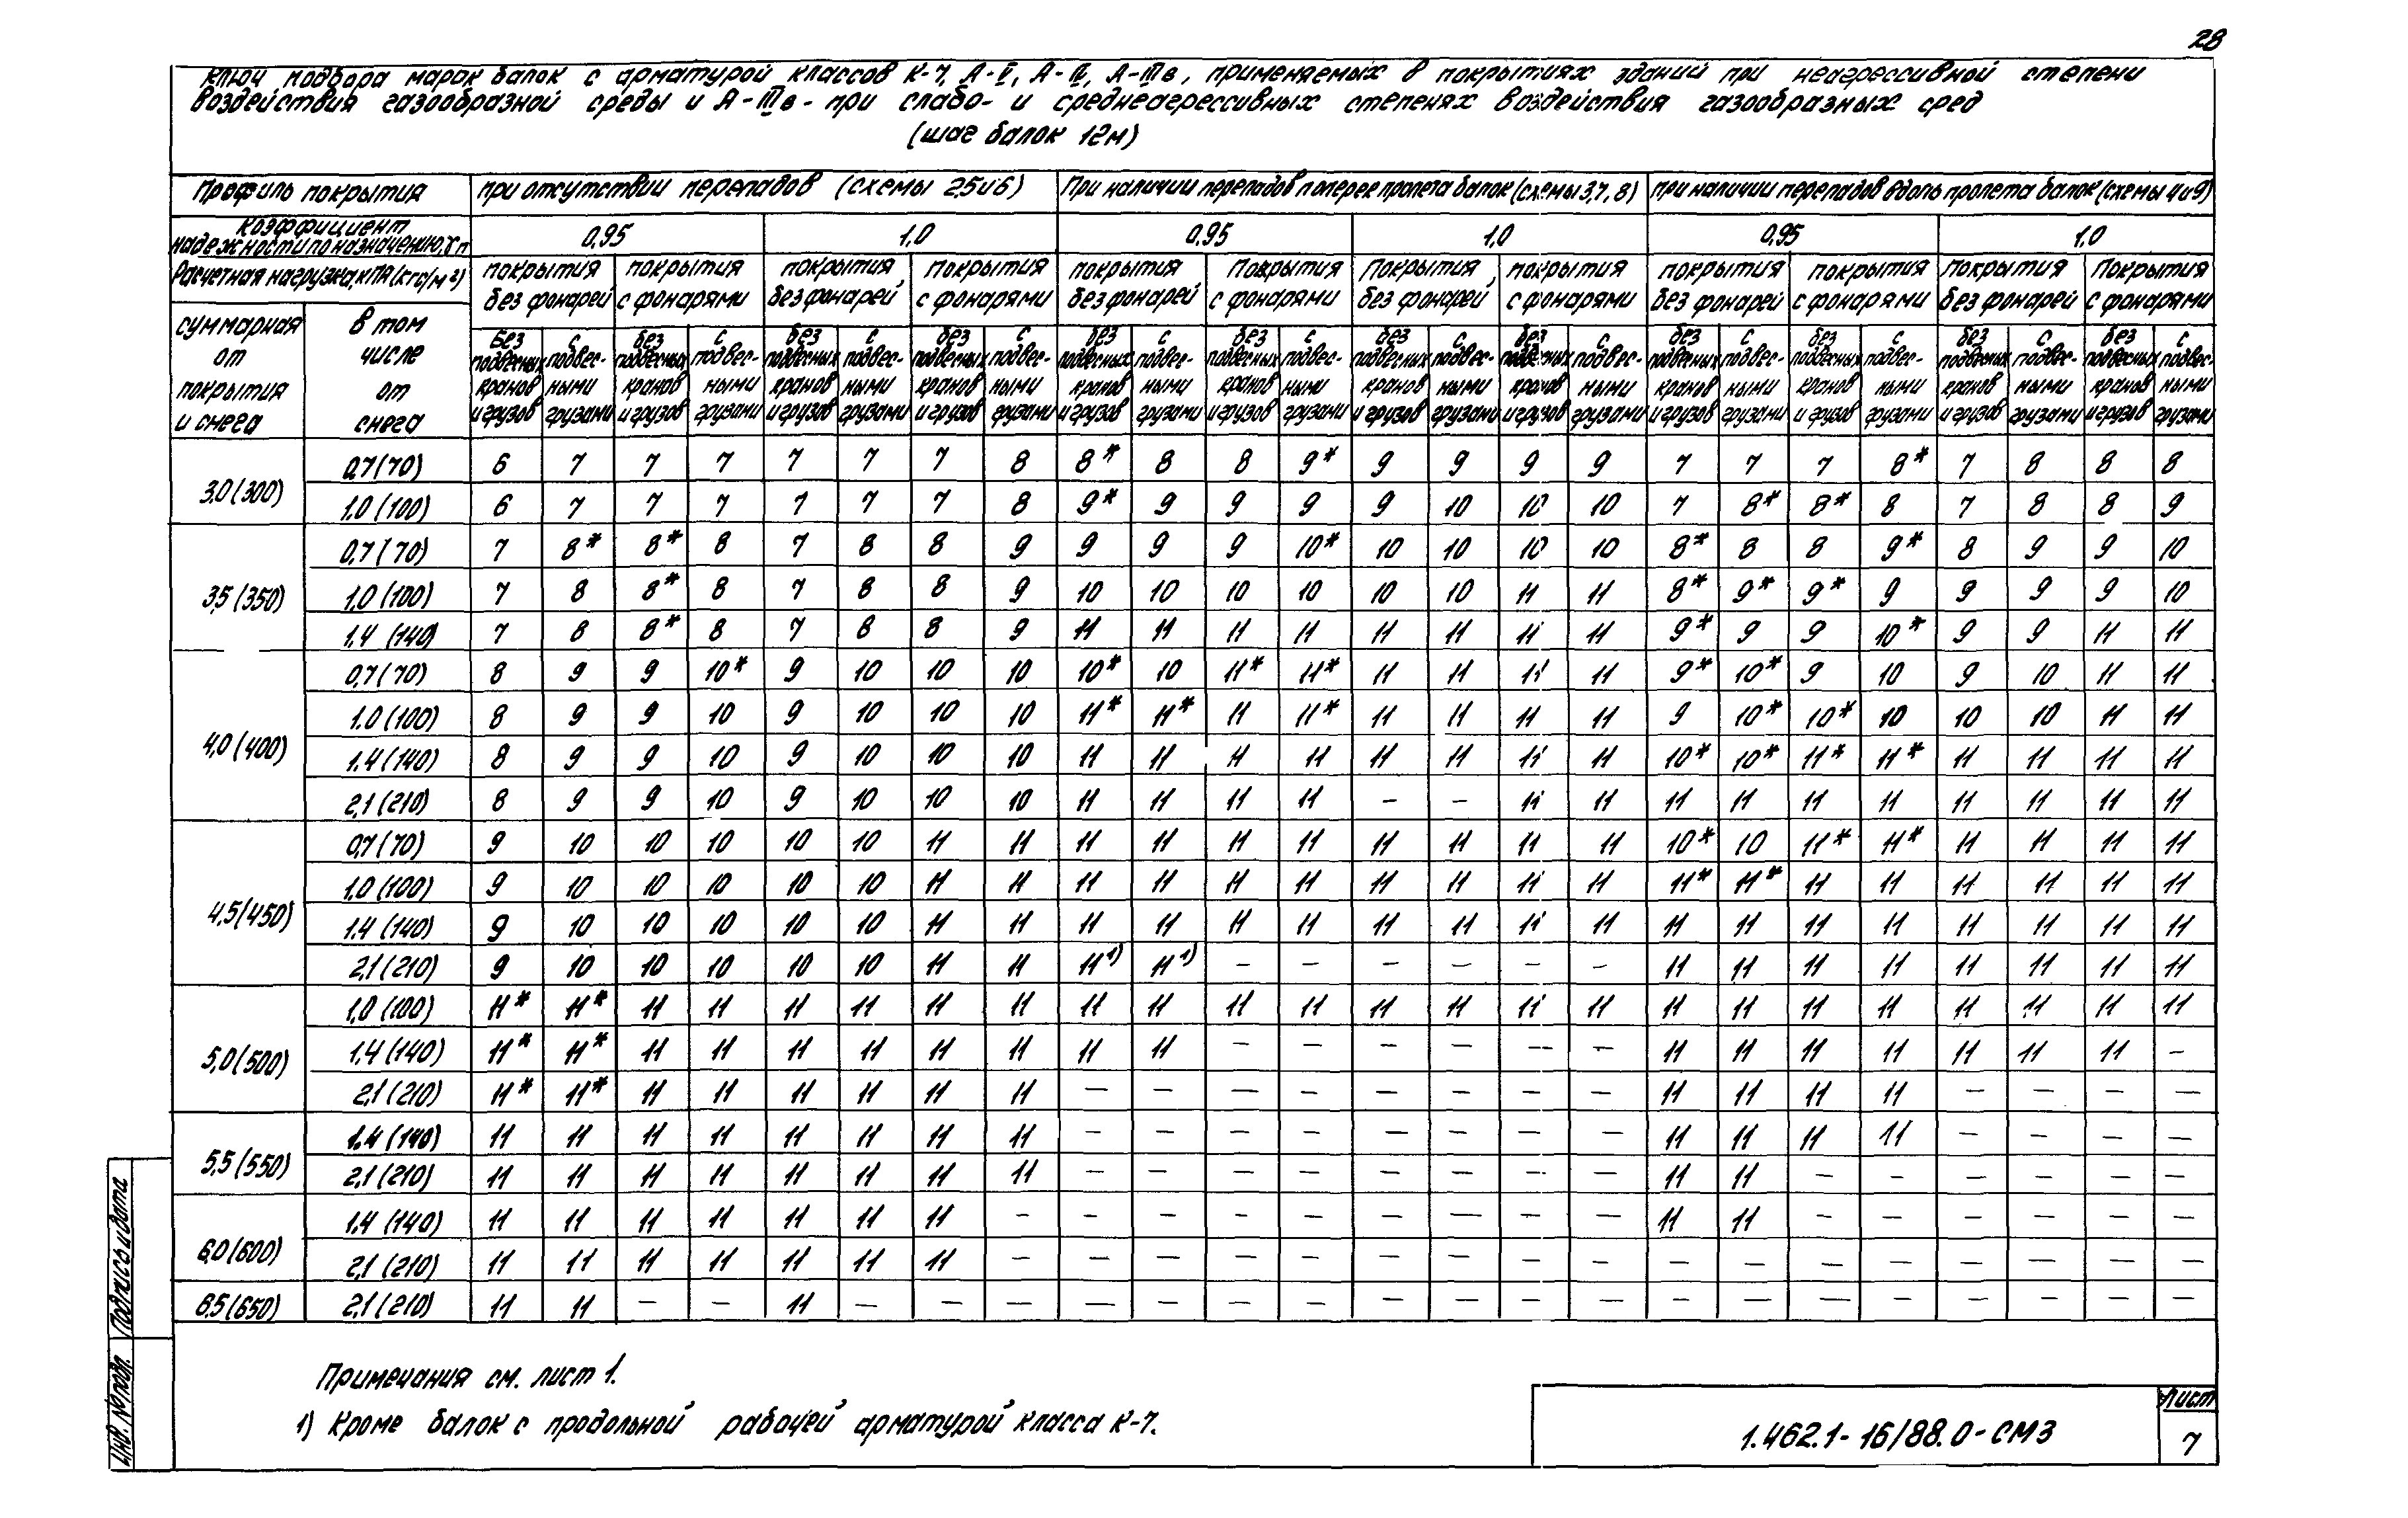 28
Ключ подбора марок балок с арматурой классов К-7, А-V, А-IV, А-IIIв, применяемых в покрытиях зданий при неагрессивной степени
воздействия газообразной среды и А-IIIв - при слабо- и среднеагрессивных степенях воздействия газообразных сред
(шаг балок 12м)
Профиль покрытия при отсутствии перепадов (схемы 2,5 и 6) При наличии перепадов поперек пролета балок (схемы 3,7,8) при наличии перепадов вдоль пролета балок (схемы 4 и 9)
Коэффициент
надежности по назначению, γn 0,95 1,0 0,95 1,0 0,95 1,0
Расчетная нагрузка, кПа (кгс/м²) покрытия без фонарей покрытия с фонарями покрытия без фонарей покрытия с фонарями покрытия без фонарей покрытия с фонарями покрытия без фонарей покрытия с фонарями покрытия без фонарей покрытия с фонарями покрытия без фонарей покрытия с фонарями
суммарная от покрытия и снега в том числе от снега без подвесных кранов и грузов с подвесными грузами без подвесных кранов и грузов с подвесными грузами без подвесных кранов и грузов с подвесными грузами без подвесных кранов и грузов с подвесными грузами без подвесных кранов и грузов с подвесными грузами без подвесных кранов и грузов с подвесными грузами без подвесных кранов и грузов с подвесными грузами без подвесных кранов и грузов с подвесными грузами без подвесных кранов и грузов с подвесными грузами без подвесных кранов и грузов с подвесными грузами без подвесных кранов и грузов с подвесными грузами без подвесных кранов и грузов с подвесными грузами
3,0 (300) 0,7 (70) 6 7 7 7 7 7 7 8 8* 8 8 9* 9 9 9 9 7 7 7 8* 7 8 8 8
1,0 (100) 6 7 7 7 7 7 7 8 9* 9 9 9 9 10 10 10 7 8* 8* 8 7 8 8 9
3,5 (350) 0,7 (70) 7 8* 8* 8 7 8 8 9 9 9 9 10* 10 10 10 10 8* 8 8 9* 8 9 9 10
1,0 (100) 7 8 8* 8 7 8 8 9 10 10 10 10 10 10 11 11 8* 9* 9* 9 9 9 9 10
1,4 (140) 7 8 8* 8 7 8 8 9 11 11 11 11 11 11 11 11 9* 9 9 10* 9 9 11 11
4,0 (400) 0,7 (70) 8 9 9 10* 9 10 10 10 10* 10 11* 11* 11 11 11 11 9* 10* 9 10 9 10 11 11
1,0 (100) 8 9 9 10 9 10 10 10 11* 11* 11 11* 11 11 11 11 9 10* 10* 10 10 10 11 11
1,4 (140) 8 9 9 10 9 10 10 10 11 11 11 11 11 11 11 11 10* 10* 11* 11* 11 11 11 11
2,1 (210) 8 9 9 10 9 10 10 10 11 11 11 11 – – 11 11 11 11 11 11 11 11 11 11
4,5 (450) 0,7 (70) 9 10 10 10 10 10 11 11 11 11 11 11 11 11 11 11 10* 10 11* 11* 11 11 11 11
1,0 (100) 9 10 10 10 10 10 11 11 11 11 11 11 11 11 11 11 11* 11* 11 11 11 11 11 11
1,4 (140) 9 10 10 10 10 10 11 11 11 11 11 11 11 11 11 11 11 11 11 11 11 11 11 11
2,1 (210) 9 10 10 10 10 10 11 11 11¹⁾ 11¹⁾ – – – – – – 11 11 11 11 11 11 11 11
5,0 (500) 1,0 (100) 11* 11* 11 11 11 11 11 11 11 11 11 11 11 11 11 11 11 11 11 11 11 11 11 11
1,4 (140) 11* 11* 11 11 11 11 11 11 11 11 – – – – – – 11 11 11 11 11 11 11 –
2,1 (210) 11* 11* 11 11 11 11 11 11 – – – – – – – – 11 11 11 11 – – – –
5,5 (550) 1,4 (140) 11 11 11 11 11 11 11 11 – – – – – – – – 11 11 11 11 – – – –
2,1 (210) 11 11 11 11 11 11 11 11 – – – – – – – – 11 11 – – – – – –
6,0 (600) 1,4 (140) 11 11 11 11 11 11 11 – – – – – – – – – 11 11 – – – – – –
2,1 (210) 11 11 11 11 11 11 11 – – – – – – – – – – – – – – – – –
6,5 (650) 2,1 (210) 11 11 – – 11 – – – – – – – – – – – – – – – – – – –
Примечания см. лист 1.
1) Кроме балок с продольной рабочей арматурой класса К-7.
1.462.1-16/88.0-СМ3
Лист
7
Инв. № подл. Подпись и дата